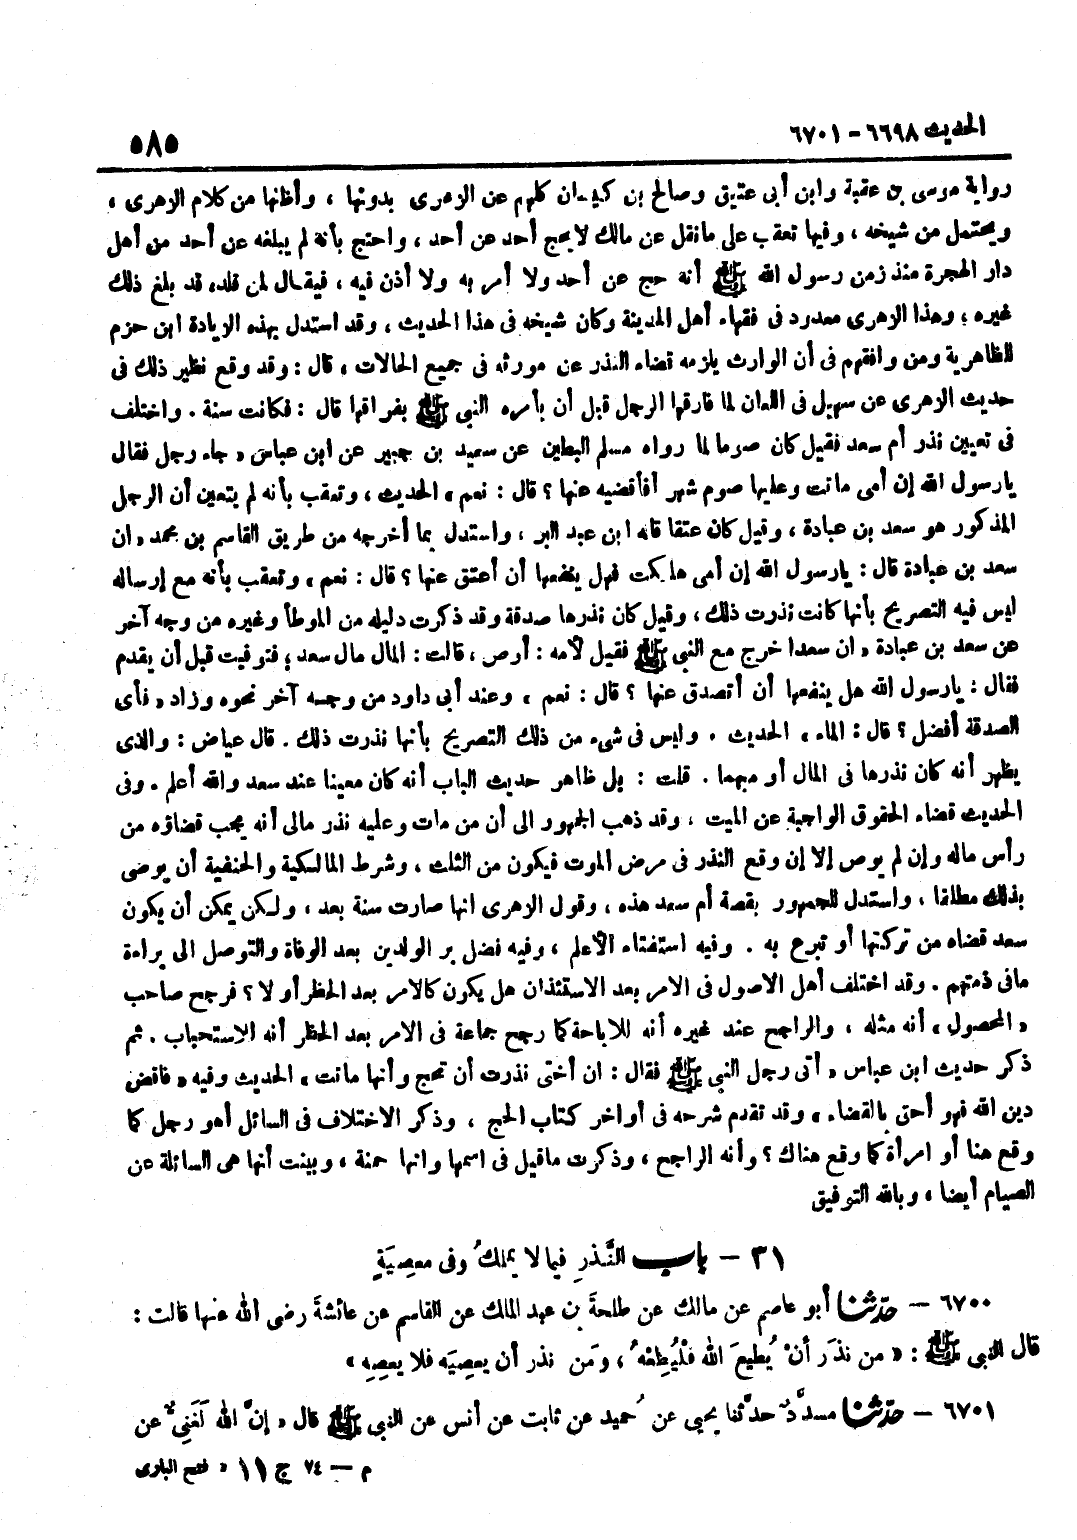 الحديث ٦٦٩٨ - ٦٧٠١
٥٨٥
رواية موسى بن عقبة وابن أبى عتيق وصالح بن كيسان كلهم عن الزهرى بدونها ، وأظنها من كلام الزهرى ،
ويحتمل من شيخه ، وفيها تعقب على مانقل عن مالك لا يحج أحد عن أحد ، واحتج بأنه لم يبلغه عن أحد من أهل
دار الهجرة منذ زمن رسول الله ﷺ أنه حج عن أحد ولا أمر به ولا أذن فيه ، فيقال لمن قلده قد بلغ ذلك
غيره ، وهذا الزهرى معدود فى فقهاء أهل المدينة وكان شيخه فى هذا الحديث ، وقد استدل بهذه الزيادة ابن حزم
للظاهرية ومن وافقهم فى أن الوارث يلزمه قضاء النذر عن مورثه فى جميع الحالات ، قال : وقد وقع نظير ذلك فى
حديث الزهرى عن سهل فى اللعان لما فارقها الرجل قبل أن يأمره النبى ﷺ بفراقها قال : فكانت سنة . واختلف
فى تعيين نذر أم سعد فقيل كان صوما لما رواه مسلم البطين عن سعيد بن جبير عن ابن عباس « جاء رجل فقال
يارسول الله إن أمى ماتت وعليها صوم شهر أفأقضيه عنها ؟ قال : نعم » الحديث ، وتعقب بأنه لم يتعين أن الرجل
المذكور هو سعد بن عبادة ، وقيل كان عتقا قاله ابن عبد البر ، واستدل بما أخرجه من طريق القاسم بن محمد « ان
سعد بن عبادة قال : يارسول الله إن أمى هلكت فهل ينفعها أن أعتق عنها ؟ قال : نعم » وتعقب بأنه مع إرساله
ليس فيه التصريح بأنها كانت نذرت ذلك ، وقيل كان نذرها صدقة وقد ذكرت دليله من الموطأ وغيره من وجه آخر
عن سعد بن عبادة « ان سعدا خرج مع النبى ﷺ فقيل لأمه : أوص ، قالت : المال مال سعد ، فتوفيت قبل أن يقدم
فقال : يارسول الله هل ينفعها أن أتصدق عنها ؟ قال : نعم » وعند أبى داود من وجه آخر نحوه وزاد « فأى
الصدقة أفضل ؟ قال : الماء » الحديث . وليس فى شىء من ذلك التصريح بأنها نذرت ذلك . قال عياض : والذى
يظهر أنه كان نذرها فى المال أو مبهما . قلت : بل ظاهر حديث الباب أنه كان معينا عند سعد والله أعلم . وفى
الحديث قضاء الحقوق الواجبة عن الميت ، وقد ذهب الجمهور الى أن من مات وعليه نذر مالى أنه يجب قضاؤه من
رأس ماله وإن لم يوص إلا إن وقع النذر فى مرض الموت فيكون من الثلث ، وشرط المالكية والحنفية أن يوصى
بذلك مطلقا ، واستدل للجمهور بقصة أم سعد هذه ، وقول الزهرى انها صارت سنة بعد ، ولكن يمكن أن يكون
سعد قضاه من تركتها أو تبرع به . وفيه استفتاء الأعلم ، وفيه فضل بر الوالدين بعد الوفاة والتوصل الى براءة
مافى ذمتهم . وقد اختلف أهل الاصول فى الامر بعد الاستئذان هل يكون كالامر بعد الحظر أو لا ؟ فرجح صاحب
« المحصول » أنه مثله ، والراجح عند غيره أنه للاباحة كما رجح جماعة فى الامر بعد الحظر أنه الاستحباب . ثم
ذكر حديث ابن عباس « أتى رجل النبى ﷺ فقال : ان أختى نذرت أن تحج وأنها ماتت » الحديث وفيه « فاقض
دين الله فهو أحق بالقضاء » وقد تقدم شرحه فى أواخر كتاب الحج ، وذكر الاختلاف فى السائل أهو رجل كما
وقع هنا أو امرأة كما وقع هناك ؟ وأنه الراجح ، وذكرت ماقيل فى اسمها وانها حمنة ، وبينت أنها هى السائلة عن
الصيام أيضا ، وبالله التوفيق
٣١ - باب النَّذرِ فيما لا يملكُ وفى معصِيَةٍ
٦٧٠٠ - حدّثنا أبو عاصم عن مالك عن طلحةَ بن عبد الملك عن القاسم عن عائشةَ رضى الله عنها قالت :
قال النبى ﷺ : « من نذَرَ أنْ يُطيعَ الله فلْيُطِعْهُ ، ومَن نذر أن يعصيَه فلا يعصِهِ »
٦٧٠١ - حدّثنا مسدَّدٌ حدَّثنا يحيى عن حُميد عن ثابت عن أنس عن النبى ﷺ قال « إنَّ الله لَغَنِيٌّ عن
م - ٧٤ ج ١١ » فتح البارى